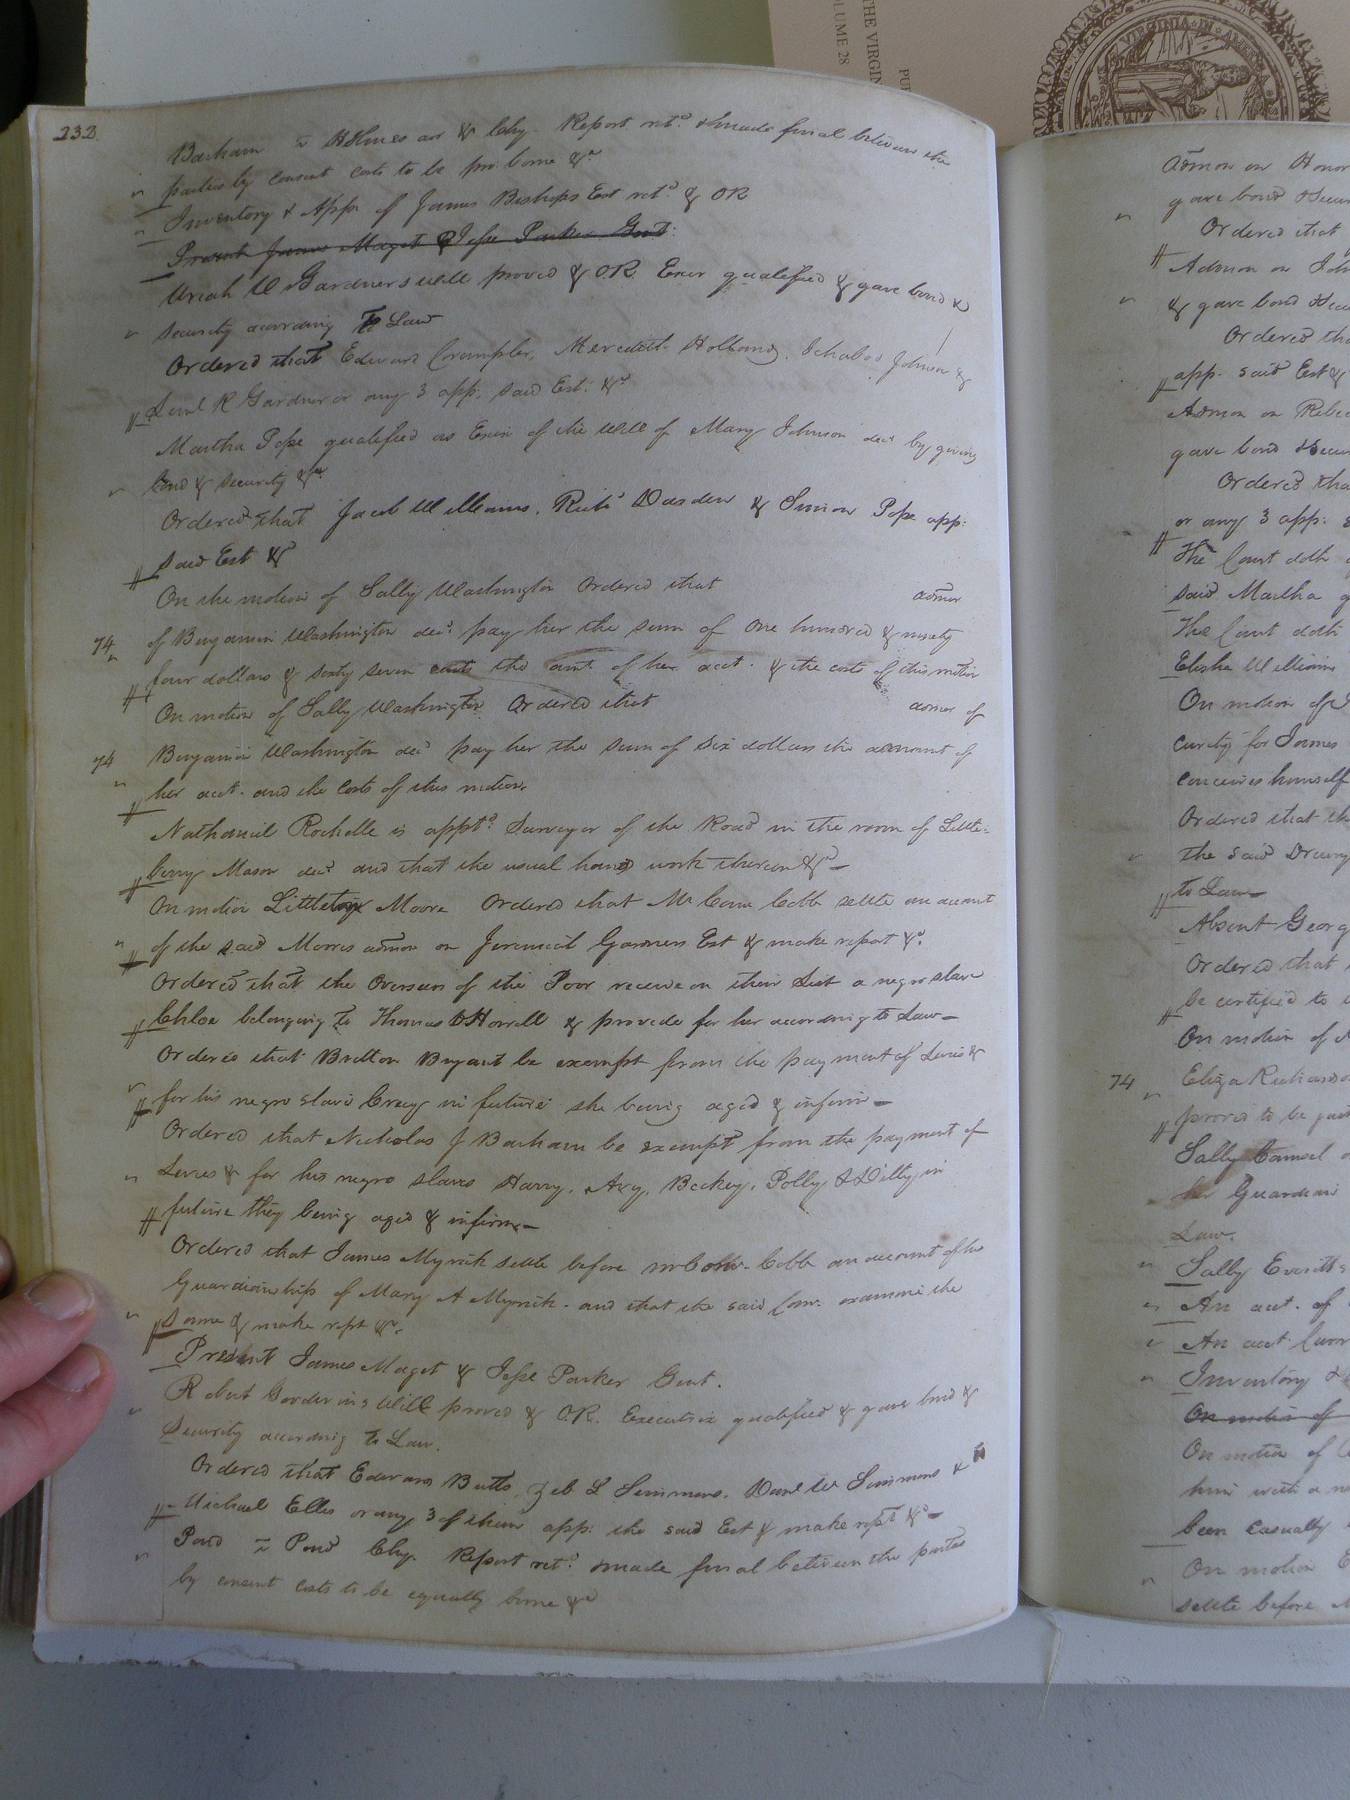 232
Barham vs Holmes ad & Chy. Report retd. & made final between the
parties by consent costs to be pro borne &c
Inventory & App. of James Bishops Est retd. & OR
Present James Maget & Jesse Parker Gent.
Uriah W Gardners will proved & OR. Exor qualified & gave bond &
security according to Law
Ordered that Edward Crumpler, Meredith Holland, Ichabod Johnson &
Leml R Gardner or any 3 app. said Est. &c
Martha Pope qualified as Exrix of the Will of Mary Johnson decd by giving
bond & security &c
Ordered that Jacob Williams, Richd Darden & Simon Pope app.
said Est &c
On the motion of Sally Washington Ordered that admor
74 of Benjamin Washington decd. pay her the sum of One hundred & ninety
four dollars & sixty seven cents the amt. of her acct. & the costs of this motion
On motion of Sally Washington Ordered that admor of
74 Benjamin Washington decd pay her the sum of six dollars the amount of
her acct. and the costs of this motion.
Nathaniel Rochelle is apptd. Surveyor of the Road in the room of Little-
berry Mason decd and that the usual hands work thereon &c
On motion Moore Ordered that Mr Com Cobb settle an account
of the said Moores admor on Jeremiah Garners Est & make report &c.
Ordered that the Overseers of the Poor receive on their List a negro slave
Chloe belonging to Thomas Howell & provide for her according to Law
Ordered that Britton Bryant be exempt from the payment of Levies &
for his negro slave Creecy in future she being aged & infirm
Ordered that Nicholas J Barham be exempt from the payment of
Levies & for his negro slaves Harry, Avy, Beckey, Polly & Dilly in
future they being aged & infirm
Ordered that James Myrick settle before Mr Com. Cobb an account of his
Guardianship of Mary A Myrick. and that the said Com. examine the
same & make rept &c.
Present James Maget & Jesse Parker Gent.
Robert Will proved & OR. Executrix qualified & gave bond &
Security according to Law.
Ordered that Edward Butts, Zeb L Simmons, Danl W Simmons &
Michael Elles or any 3 of them app. the said Est & make rept &c
Pond vs Pond Chy. Report retd. & made final between the parties
by consent costs to be equally borne &c
THE VIRGIN
VOLUME 28
VIRGINIA IN AMERI
admon on Honor
gave bond & Secur
Ordered that
Admon on John
& gave bond & Secu
Ordered tha
app. said Est &
Admon on Rebec
gave bond & Secur
Ordered tha
or any 3 app.
The Court doth
said Martha
The Court doth
Elisha Williams
On motion of
curity for James
conceives himself
Ordered that th
the said Drewry
to Law
Absent Georg
Ordered that
be certified to
On motion of
74 Eliza Richardso
proved to be
Sally
her Guardian
Law.
Sally Everitts
An acct. of
An acct Curr
Inventory &
On motion of
On motion of
him with a
been casually
On motion
settle before